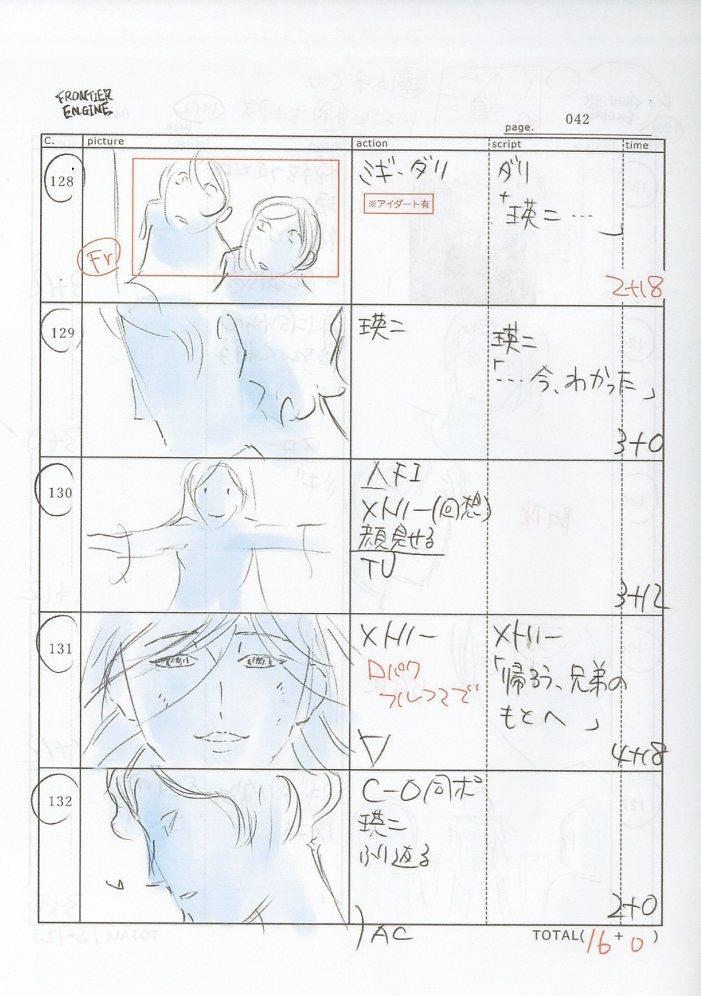 FRONTIER
ENGINE
page. 042
C. picture action script time
128
Fr
ミギ・ダリ
※アイダート有
ダリ
「瑛二…」
2+18
129
瑛二
瑛二
「…今、わかった」
3+0
130
F.I
メトリー(回想)
顔見せる
TU
3+12
131
メトリー
口パク
フルコマで
メトリー
「帰ろう、兄弟の
もとへ」
4+18
132
C-O同ポ
瑛二
ふり返る
2+0
AC
TOTAL(16+0)